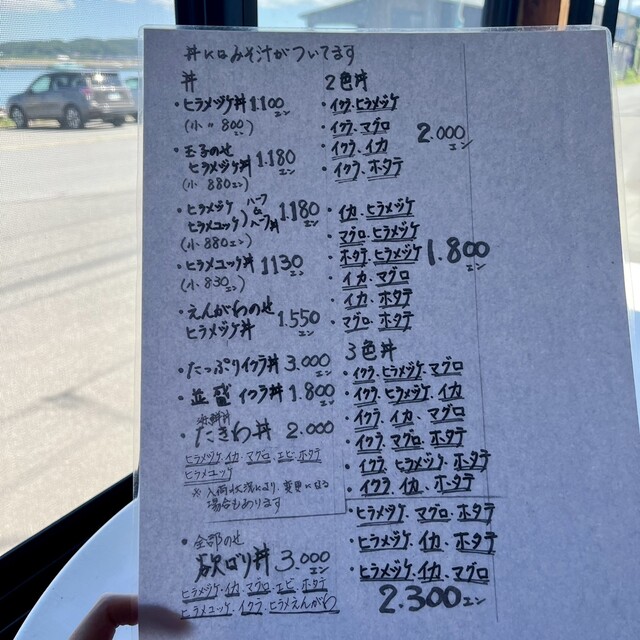 丼にはみそ汁がついてます
丼
・ヒラメヅケ丼 1.100エン
(小〃 800)
・玉子のせ
ヒラメヅケ丼 1.180エン
(小 880エン)
・ヒラメヅケ
ヒラメユッケ)ハーフ&ハーフ丼 1.180エン
(小 880エン)
・ヒラメユッケ丼 1130エン
(小 830エン)
・えんがわのせ
ヒラメヅケ丼 1.550エン
・たっぷりイクラ丼 3.000エン
・並盛イクラ丼 1.800エン
海鮮丼
・たきわ丼 2.000エン
ヒラメヅケ、イカ、マグロ、エビ、ホタテ
ヒラメユッケ
※入荷状況により、変更になる
場合もあります
・全部のせ
欲ばり丼 3.000エン
ヒラメヅケ、イカ、マグロ、エビ、ホタテ
ヒラメユッケ、イクラ、ヒラメえんがわ
2色丼
・イクラ、ヒラメヅケ
・イクラ、マグロ
・イクラ、イカ
・イクラ、ホタテ
2.000エン
・イカ、ヒラメヅケ
・マグロ、ヒラメヅケ
・ホタテ、ヒラメヅケ
・イカ、マグロ
・イカ、ホタテ
・マグロ、ホタテ
1.800エン
3色丼
・イクラ、ヒラメヅケ、マグロ
・イクラ、ヒラメヅケ、イカ
・イクラ、イカ、マグロ
・イクラ、マグロ、ホタテ
・イクラ、ヒラメヅケ、ホタテ
・イクラ、イカ、ホタテ
・ヒラメヅケ、マグロ、ホタテ
・ヒラメヅケ、イカ、ホタテ
・ヒラメヅケ、イカ、マグロ
2.300エン